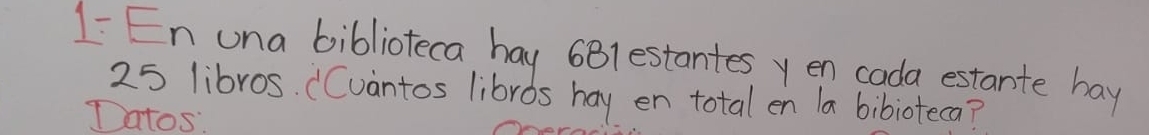 1.- En una biblioteca hay 681 estantes y en cada estante hay
25 libros. ¿Cuántos libros hay en total en la bibioteca?
Datos: